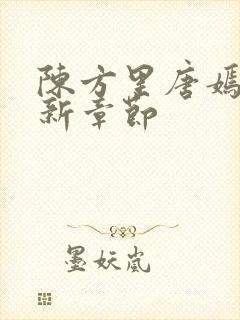 陳方里唐嫣
新章節
墨妖嵐